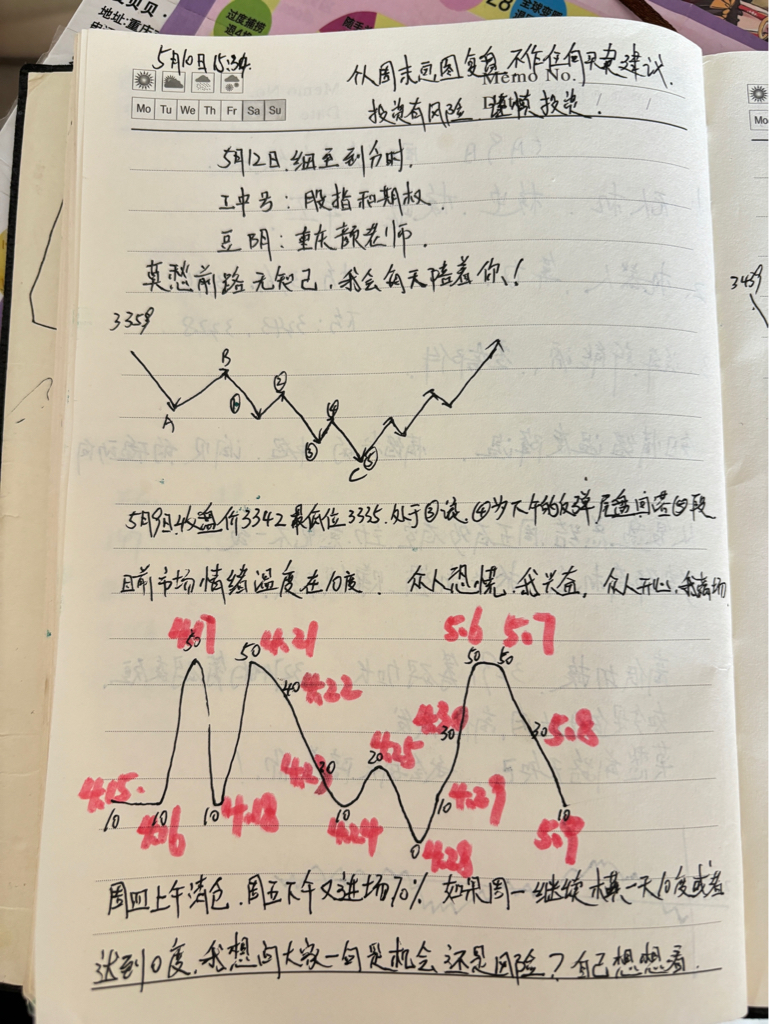 贝贝.
地址:重庆
28
5月10日 15:34
从周末画图复盘 不作任何买卖建议.
Memo No.
Mo Tu We Th Fr Sa Su
投资有风险. 谨慎投资!
5月12日.细至到分时.
工中号:股指和期权.
豆阴:重庆颜老师.
莫愁前路无知己,我会每天陪着你!
3359
3439
A
B
①
②
③
④
C
⑤
5月9日收盘价3342最低位3335.处于③浪.④为下午的反弹尾盘
目前市场情绪温度在10度. 众人恐慌.我兴奋,众人开心.我离场
4.15.
10
4.16
10
4.17
50
4.18
10
4.21
50
4.22
40
4.23
30
4.24
10
4.25
20
4.28
0
4.29
10
4.30
30
5.6
50
5.7
50
5.8
30
5.9
10
周四上午清仓.周五下午又进场70% 如果周一继续横一天10度或者
达到0度.我想问大家一句是机会还是风险?自己想想看.